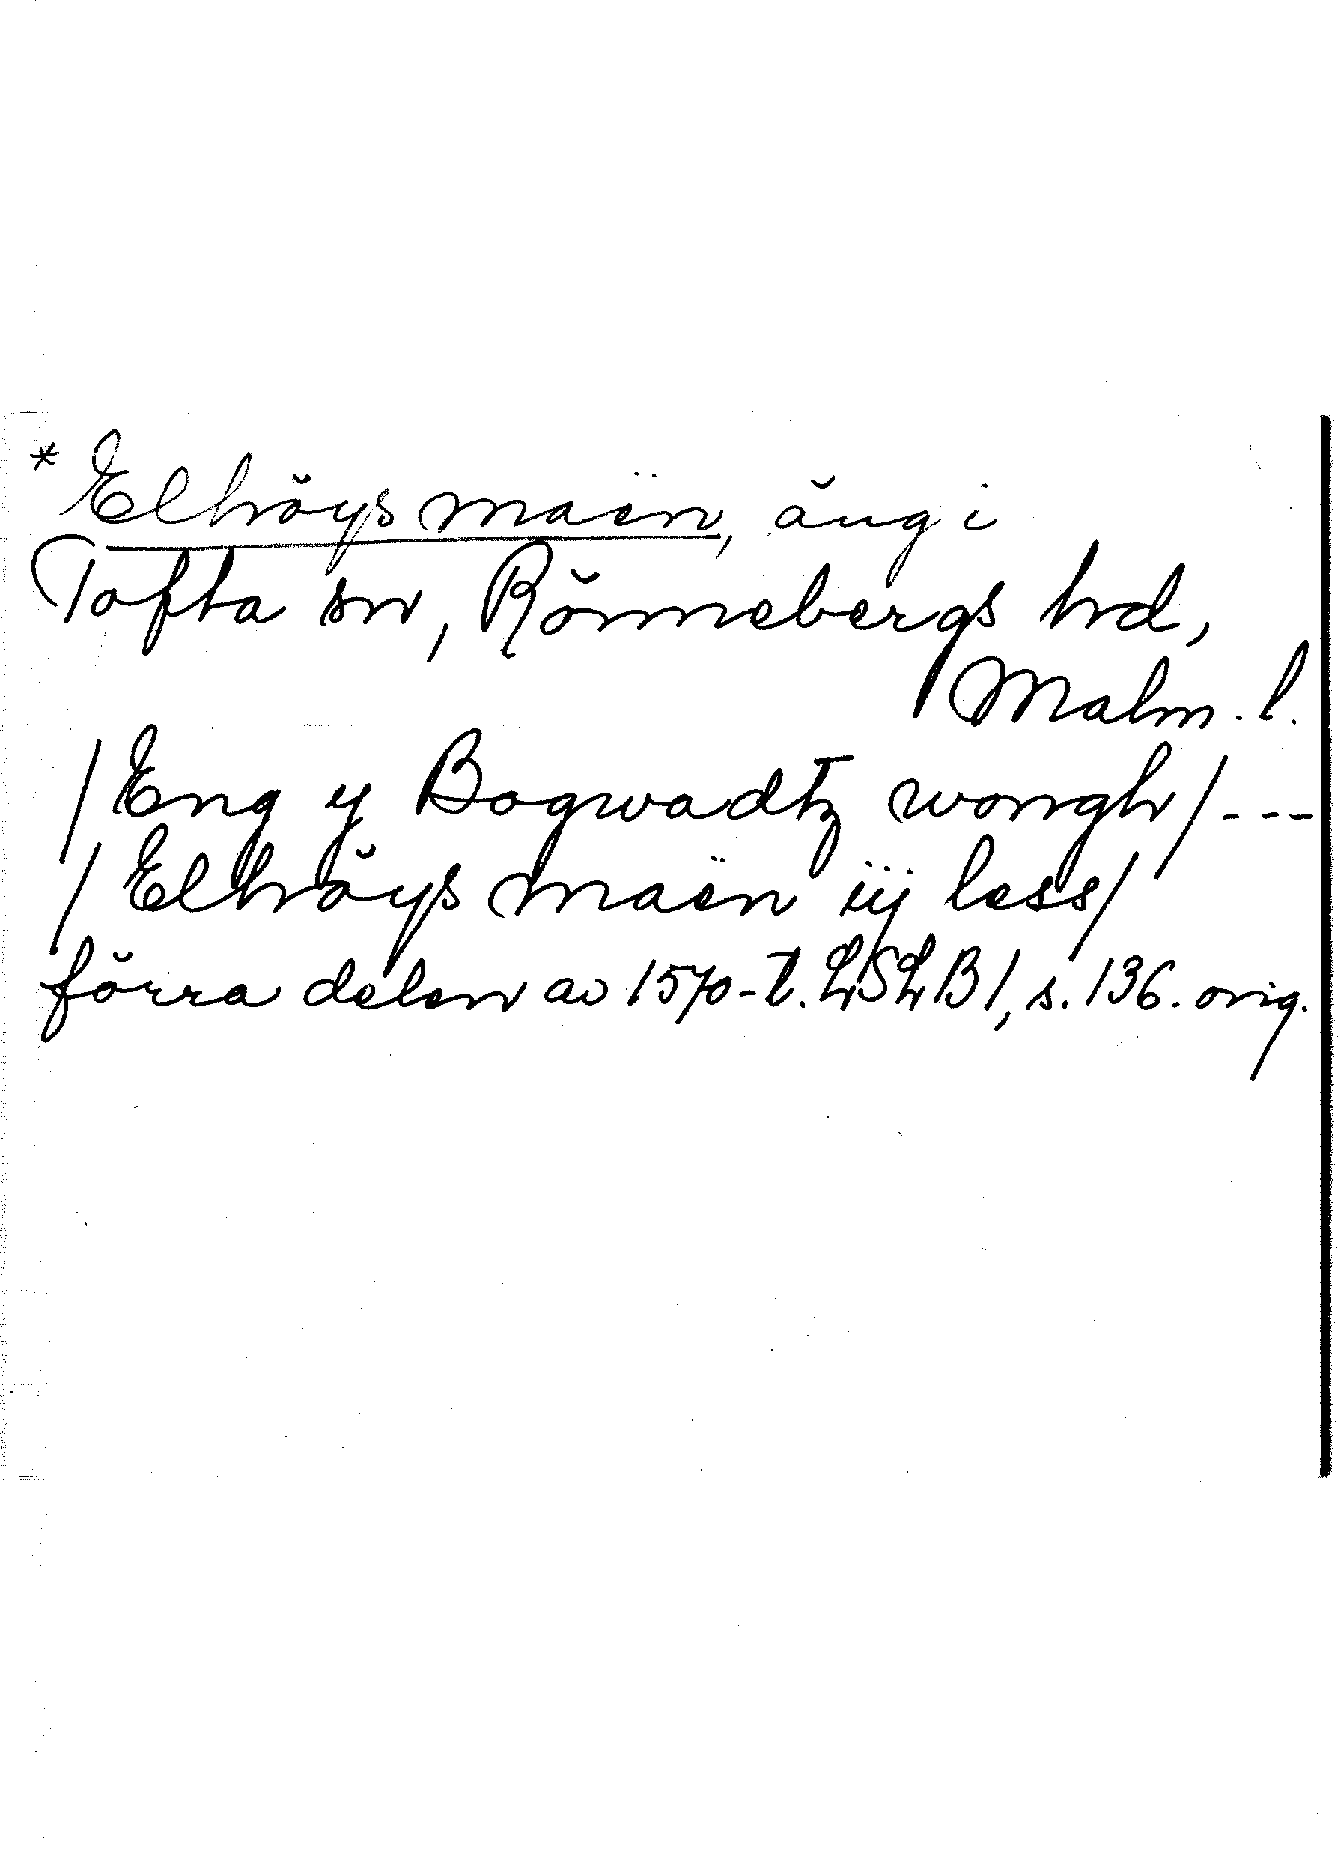 * Elhöys maën, äng i
Tofta sn, Rönnebergs hd,
Malm. l.
/Eng y Bogwadtz wongh/---
/Elhöys maën iij less/
förra delen av 1570-t. LSLB1, s. 136. orig.